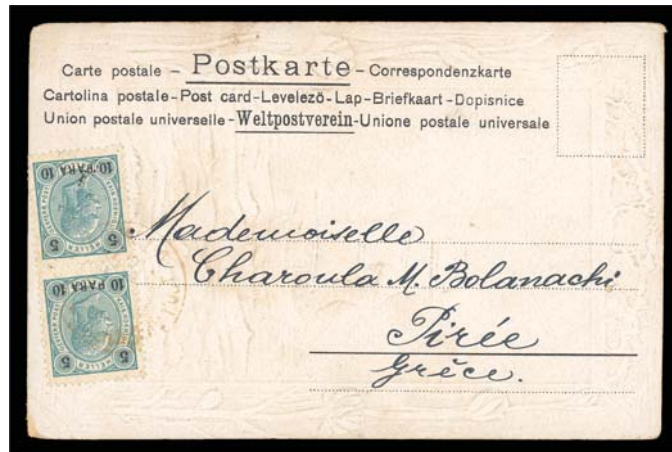 Carte postale – Postkarte – Correspondenzkarte
Cartolina postale – Post card – Levelező-Lap – Briefkaart – Dopisnice
Union postale universelle – Weltpostverein – Unione postale universale
10 PARA 10
5 HELLER 5
10 PARA 10
5 HELLER 5
Mademoiselle
Charoula M. Bolanachi
Pirée
Grèce.